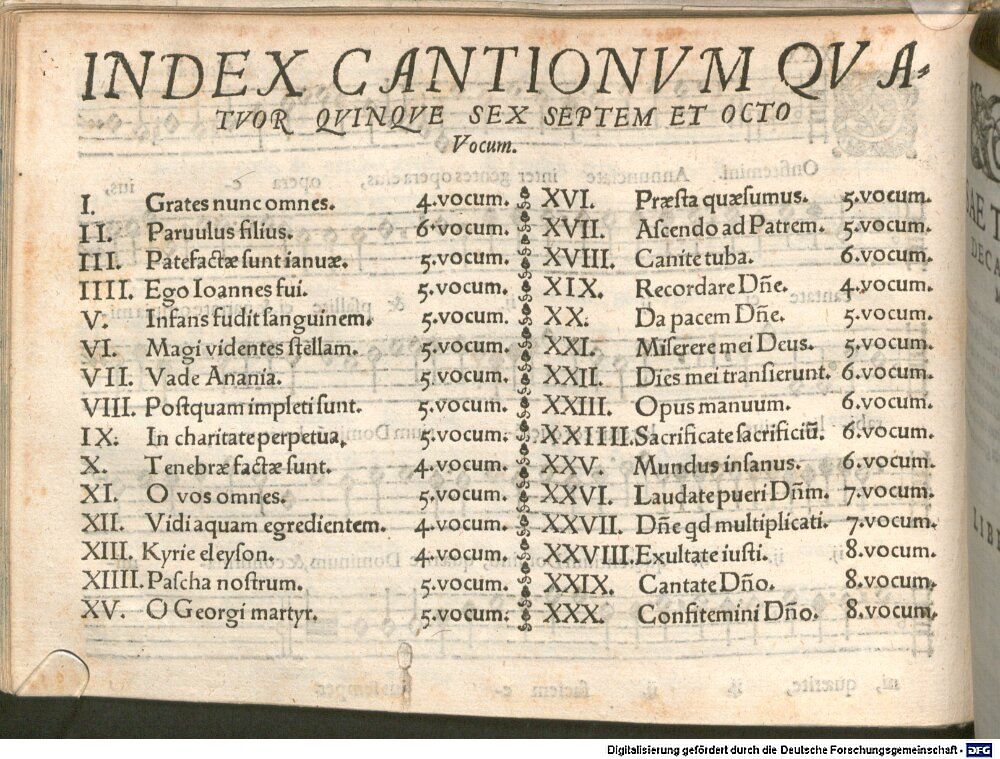 INDEX CANTIONVM QVA-
TVOR QVINQVE SEX SEPTEM ET OCTO
Vocum.
I. Grates nunc omnes. 4.vocum.
II. Paruulus filius. 6.vocum.
III. Patefactæ sunt ianuæ. 5.vocum.
IIII. Ego Ioannes fui. 5.vocum.
V. Infans fudit sanguinem. 5.vocum.
VI. Magi videntes stellam. 5.vocum.
VII. Vade Anania. 5.vocum.
VIII. Postquam impleti sunt. 5.vocum.
IX. In charitate perpetua. 5.vocum.
X. Tenebræ factæ sunt. 4.vocum.
XI. O vos omnes. 5.vocum.
XII. Vidi aquam egredientem. 4.vocum.
XIII. Kyrie eleyson. 4.vocum.
XIIII. Pascha nostrum. 5.vocum.
XV. O Georgi martyr. 5.vocum.
XVI. Præsta quæsumus. 5.vocum.
XVII. Ascendo ad Patrem. 5.vocum.
XVIII. Canite tuba. 6.vocum.
XIX. Recordare Dñe. 4.vocum.
XX. Da pacem Dñe. 5.vocum.
XXI. Miserere mei Deus. 5.vocum.
XXII. Dies mei transierunt. 6.vocum.
XXIII. Opus manuum. 6.vocum.
XXIIII. Sacrificate sacrificiũ. 6.vocum.
XXV. Mundus insanus. 6.vocum.
XXVI. Laudate pueri Dñm. 7.vocum.
XXVII. Dñe qd multiplicati. 7.vocum.
XXVIII. Exultate iusti. 8.vocum.
XXIX. Cantate Dño. 8.vocum.
XXX. Confitemini Dño. 8.vocum.
Digitalisierung gefördert durch die Deutsche Forschungsgemeinschaft - DFG